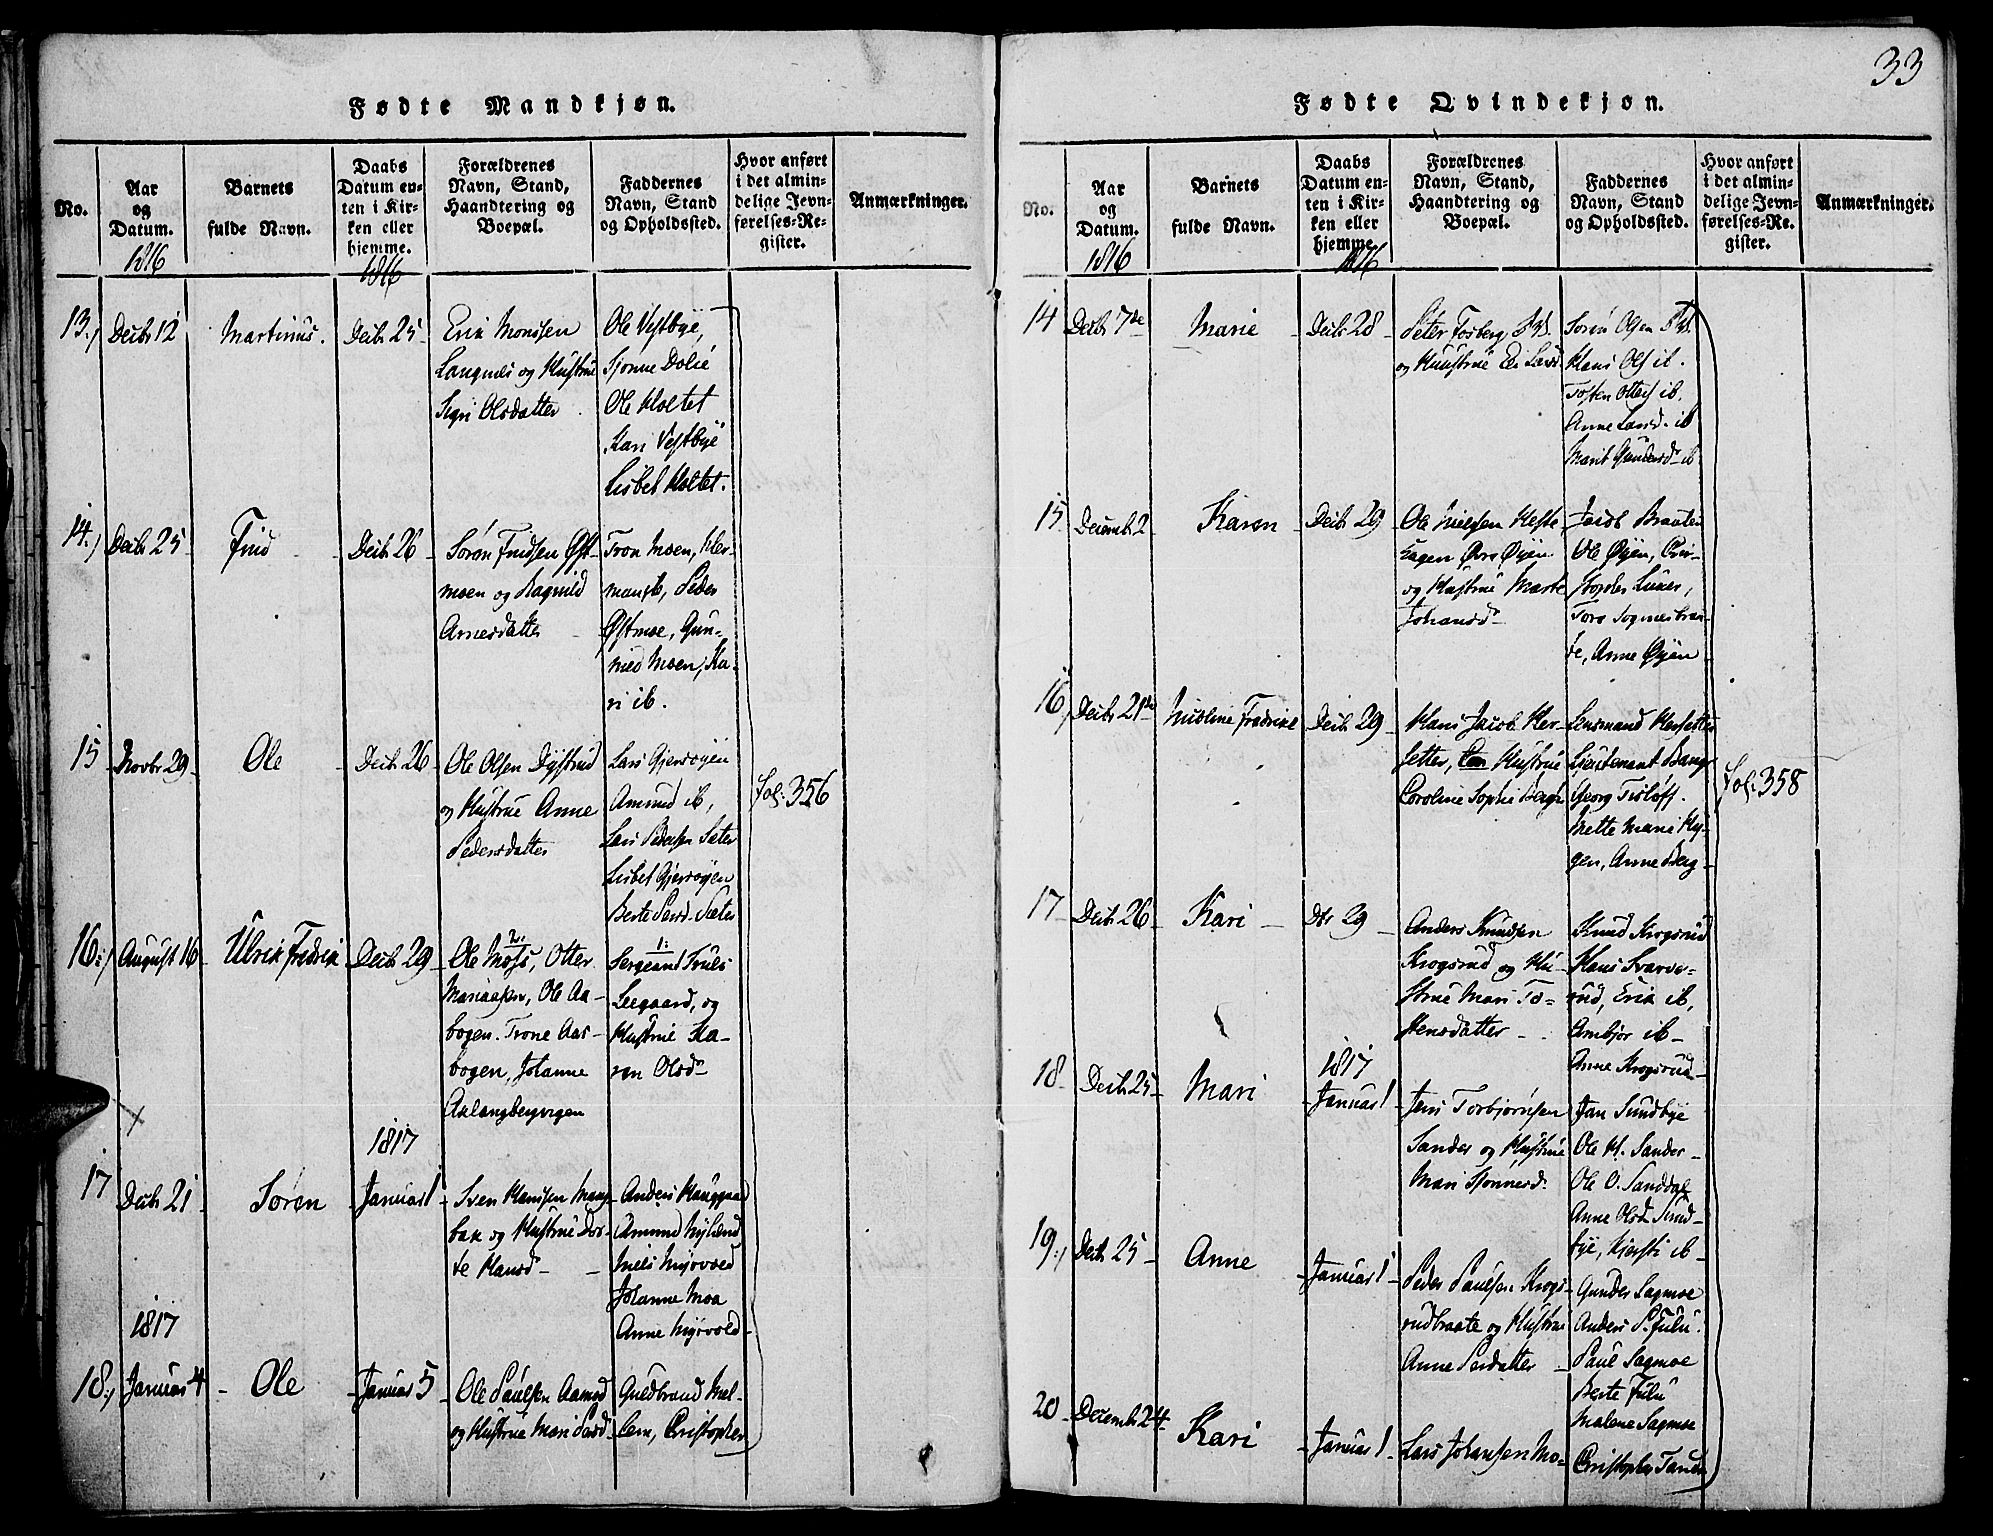 33
Fødte Mandkjøn.
No.
Aar
og
Datum.
1816
Barnets
fulde Navn.
Daabs
Datum en-
ten i Kir-
ken eller
hjemme.
1816
Forældrenes
Navn, Stand,
Haandtering og
Boepæl.
Faddernes
Navn, Stand
og Opholdssted.
Hvor anført
i det almin-
delige Jevn-
førelses-Re-
gister.
Anmærkninger.
13.)
Decbr 12
Martinus.
Decbr 25
Erik Monssen
Langnes og Hustrue
Sigri Olsdatter
Ole Vestbye,
Sjønne Dolie
Ole Holtet
Kari Vestbye
Lisbet Holtet.
14.)
Decbr 25
Find
Decbr 26
Søren Findsen Øst-
moen og Ragnild
Arnesdatter
Tron Moen, Her-
man ib, Peder
Østmoe, Gun-
ned Moen, Ka-
ri ib.
15
Novbr 29
Ole
Decbr 26
Ole Olsen Dystrud
og Hustrue Anne
Pedersdatter
Lars Gjersøyen
Amund ib,
Lars Pedersen Sæter
Lisbet Gjersøyen
Berte Persd. Sæter
fol: 356
16.)
August 16
Ulrik Fredrik
Decbr 29
2.
Ole Moss, Otter
Mariaasen, Ole Aa-
bogen. Trone Aas-
bogen, Johanne
Aaslangbergvigen
1:
Sergeant Truls
Leegaard, og
Hustrue Ka-
ren Olsd
1817
17
Decbr 21
Søren
Januar 1
Sven Hanssen Haug-
bak og Hustrue Dor-
te Hansd
Anders Hauggaad
Amund Nyland
Niels Myrvold
Johanne Moa
Anne Myrvold
1817
18.)
Januar 4
Ole
Januar 5
Ole Paulsen Aamod
og Hustrue Mari Persd
Guldbrand Mel-
lem, Christopher
Fødte Qvindekjøn.
No.
Aar
og
Datum.
1816
Barnets
fulde Navn.
Daabs
Datum en-
ten i Kir-
ken eller
hjemme.
1816
Forældrenes
Navn, Stand,
Haandtering og
Boepæl.
Faddernes
Navn, Stand
og Opholdssted.
Hvor anført
i det almin-
delige Jevn-
førelses-Re-
gister.
Anmærkninger.
14
Decbr 7de
Marie
Decbr 28
Peter Fosberg
og Hustrue Eli Larsd
Søren Olsen
Hans Ols ib.
Tosten Otters ib.
Anne Larsd. ib
Marit Gundersd ib
15
Decembr 2
Karen
Decbr 29
Ole Nielsen Heste-
hagen Øvre Øyen
og Hustrue Marte
Johansd
Jacob Braaten
Ole Øyen, Cri-
stopher Lunes,
Tore Sognesbraa-
te, Anne Øyen
16
Decbr 21de
Nicoline Fredrike
Decbr 29
Hans Jacob Her-
setter, Hustrue
Caroline Sophie Bergh
Lensmand Hersetter
Lieutenant Bang
Georg Tisløff.
Mette Marie Hy-
gen, Anne Berg
fol: 358
17
Decbr 26
Kari
Dbr 29
Anders Knudsen
Krogsrud og Hu-
strue Mari To-
stensdatter
Knud Krogsrud
Hans Svarve-
rud, Erik ib,
Ambjør ib
Anne Krogsrud
1817
18
Decbr 25
Mari
Januar 1
Jens Torbjørnsen
Sander og Hustrue
Mari Sjønnesd.
Jan Sundbye
Ole H. Sander
Ole O. Sanddal
Anne Olsd Sund-
bye, Kjersti ib
19.)
Decbr 25
Anne
Januar 1
Peder Paulsen Krogs-
rudbraate og Hustrue
Anne Persdatter
Gunder Sagmoe
Anders P. Fulu.
Paul Sagmoe
Berte Fulu
Malene Sagmoe
20
Decembr 24
Kari
Januar 1
Lars Johansen Mo-
Christopher